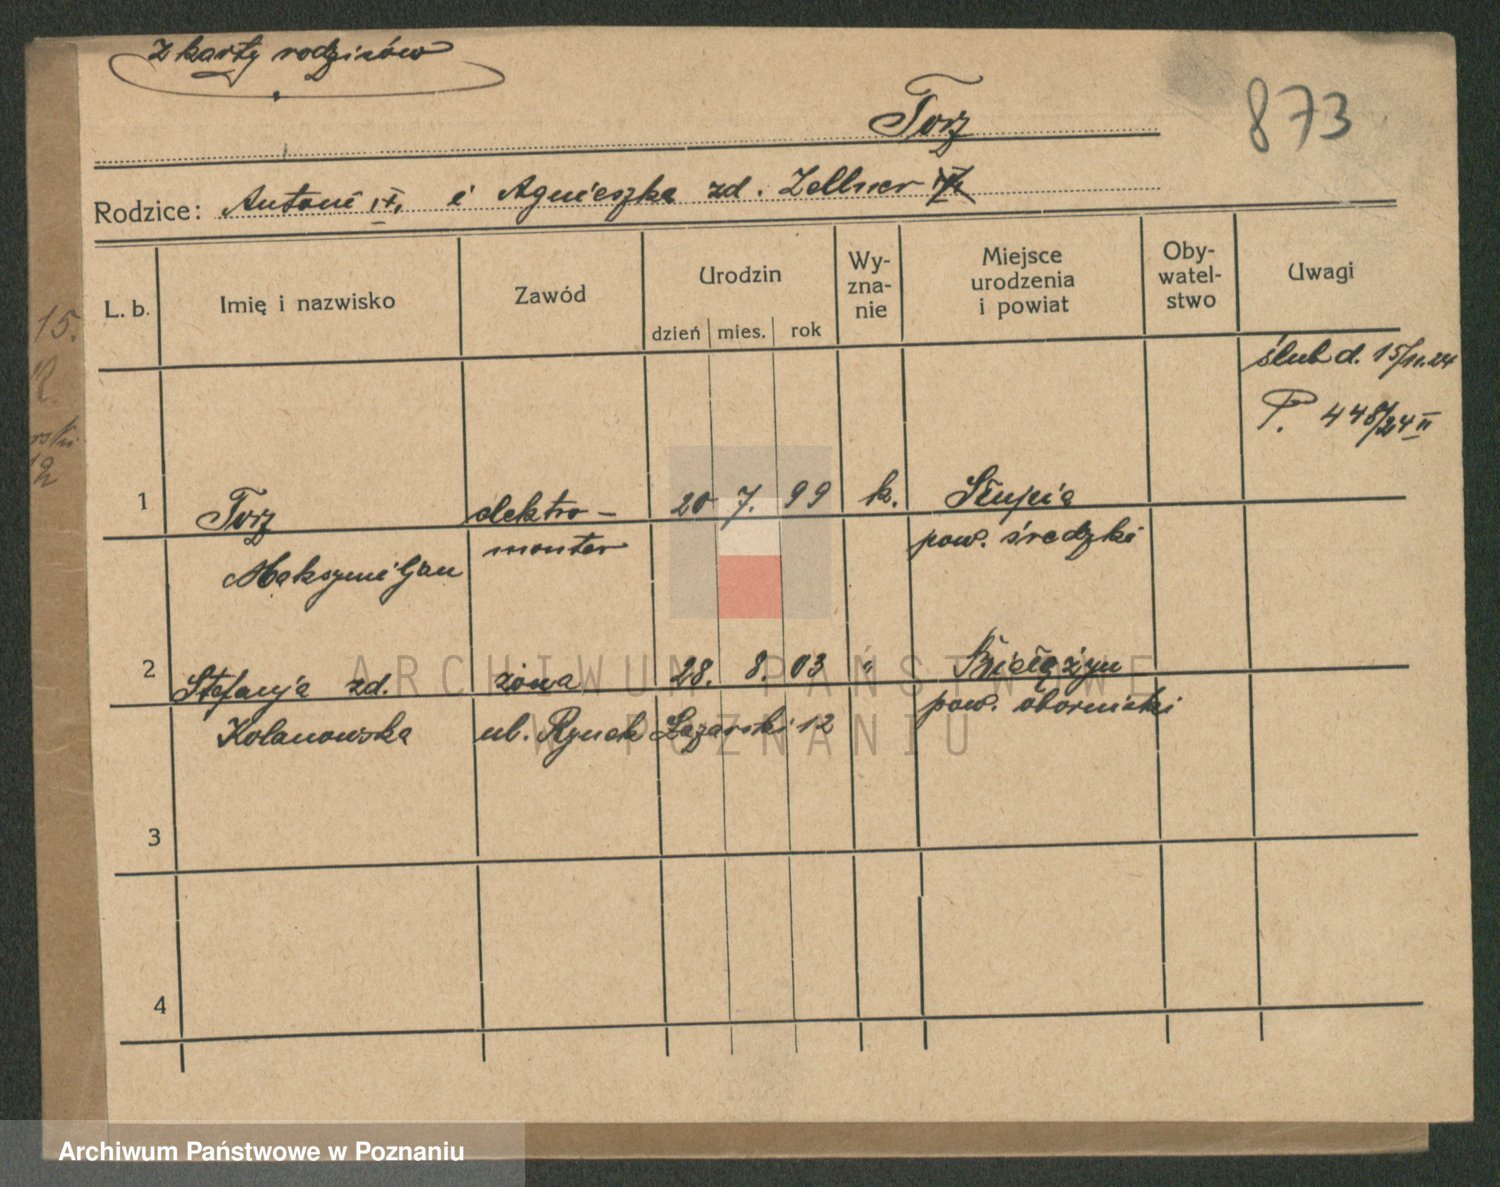 z karty rodziców
Torz
873
Rodzice: Antoni i Agnieszka zd. Zellner
L. b.
Imię i nazwisko
Zawód
Urodzin
dzień mies. rok
Wy-
zna-
nie
Miejsce
urodzenia
i powiat
Oby-
watel-
stwo
Uwagi
ślub d. 15/11.24
P. 448/24 II
1 Torz elektro- 20 7. 99 k. Słupia
Maksymiljan monter pow. średzki
2 Stefanja zd. żona 28. 8. 03 " Białężyn
Kolanowska ul. Rynek Łazarski 12 pow. obornicki
3
4
15.
R.
rski
12
ARCHIWUM PAŃSTWOWE
W POZNANIU
Archiwum Państwowe w Poznaniu